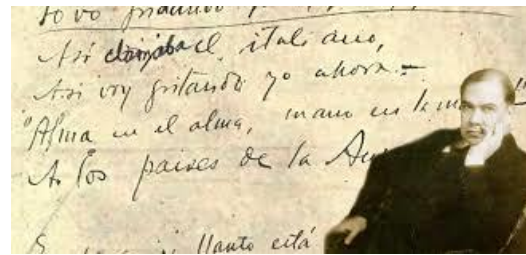 Io vo gridando
Así clamaba el italiano,
Así voy gritando yo ahora:
"Alma en el alma, mano en la
A los países de la
llanto está